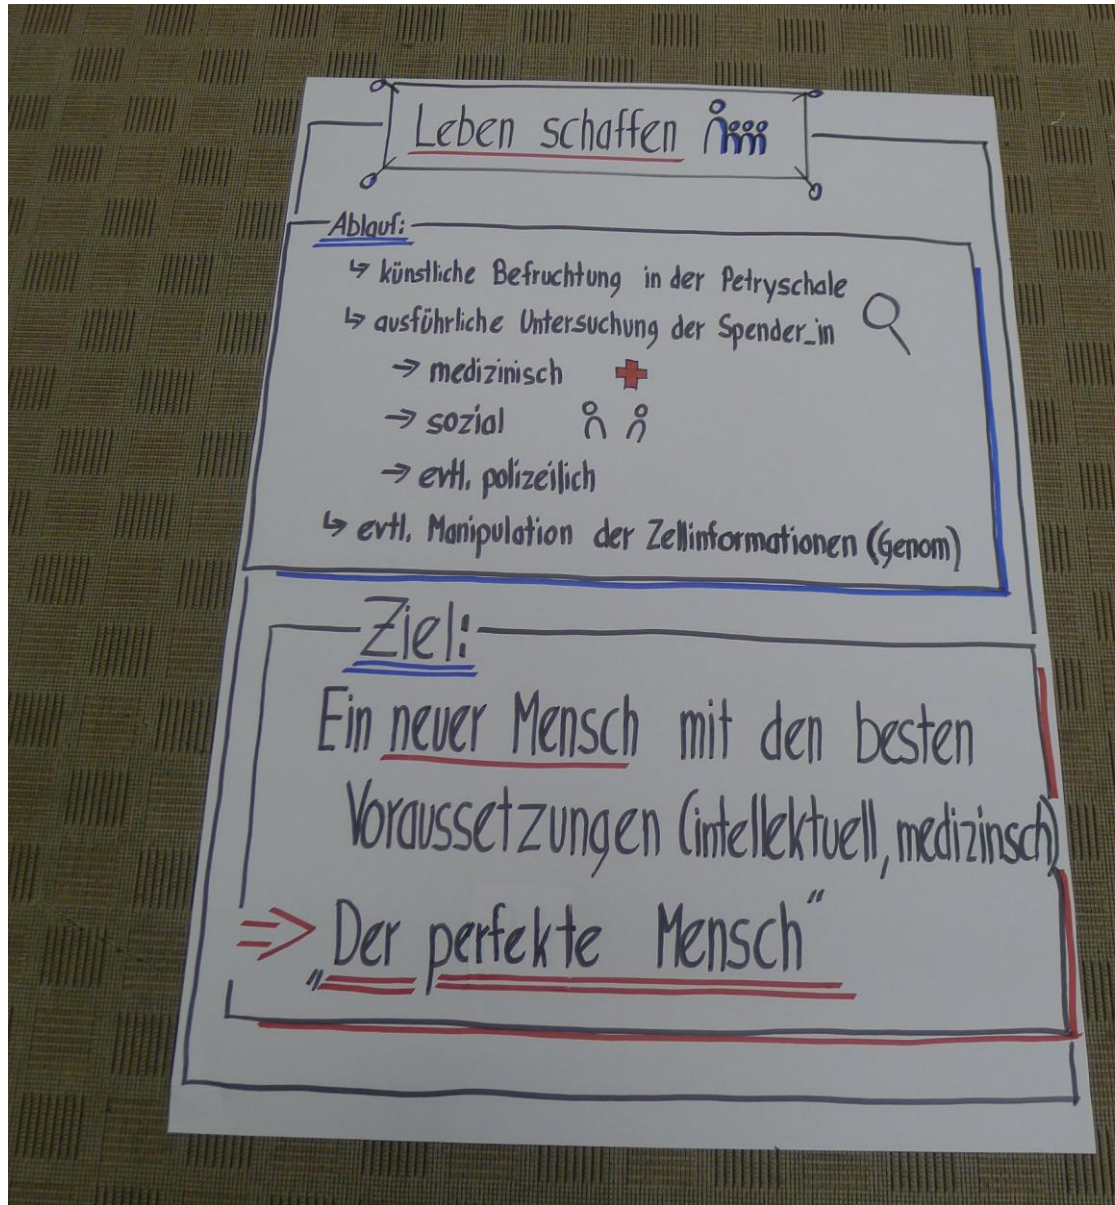 Leben schaffen
Ablauf:
↳ künstliche Befruchtung in der Petryschale
↳ ausführliche Untersuchung der Spender_in
→ medizinisch
→ sozial
→ evtl. polizeilich
↳ evtl. Manipulation der Zellinformationen (Genom)
Ziel:
Ein neuer Mensch mit den besten
Voraussetzungen (intellektuell, medizinsch)
⇒ „Der perfekte Mensch"